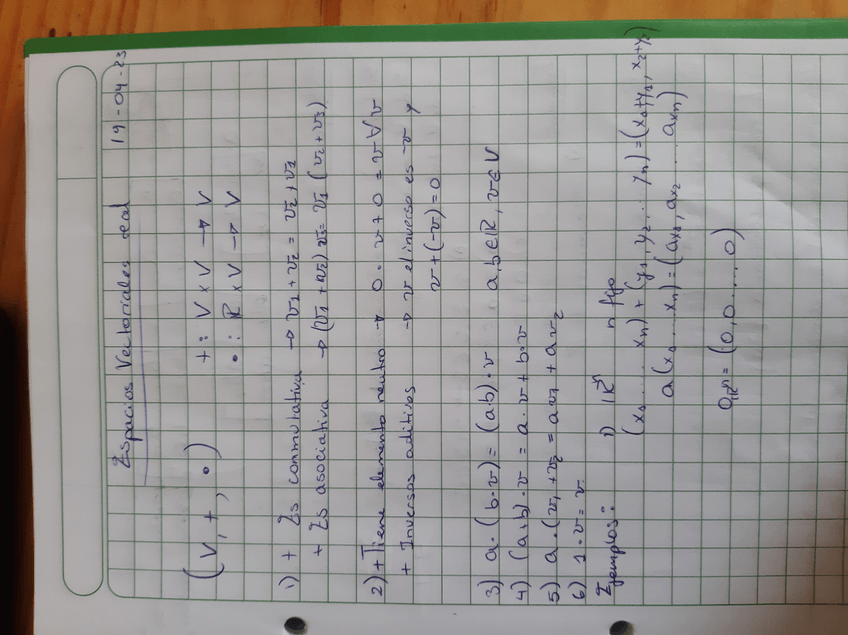 Espacios Vectoriales real 19-04-23
(V, +, •) + : V x V → V
• : ℝ x V → V
1) + Es conmutativa → v1 + v2 = v2 + v1
+ Es asociativa → (v1 + v2) v3 = v1 (v2 + v3)
2) + Tiene elemento neutro → 0. v + 0 = v ∀ v
+ Inversos aditivos → v el inverso es -v y
v + (-v) = 0
3) a · (b · v) = (ab) · v a, b ∈ ℝ, v ∈ V
4) (a + b) · v = a · v + b · v
5) a · (v1 + v2 = a v1 + a v2
6) 1 · v = v
Ejemplos: 1) ℝⁿ n fijo
(x1 ... xn) + (y1, y2, ... yn) = (x1+y1, x2+y2)
a (x1 ... xn) = (ax1, ax2 ... axn)
0ℝⁿ = (0, 0 ..., 0)